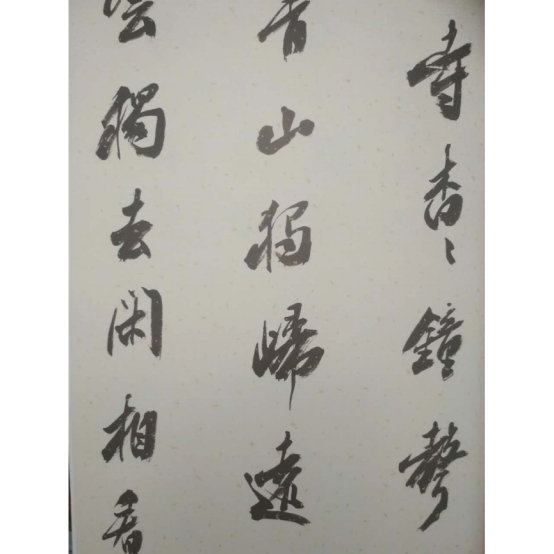 寺杳〻鐘聲
青山獨歸遠
雲獨去閑相看